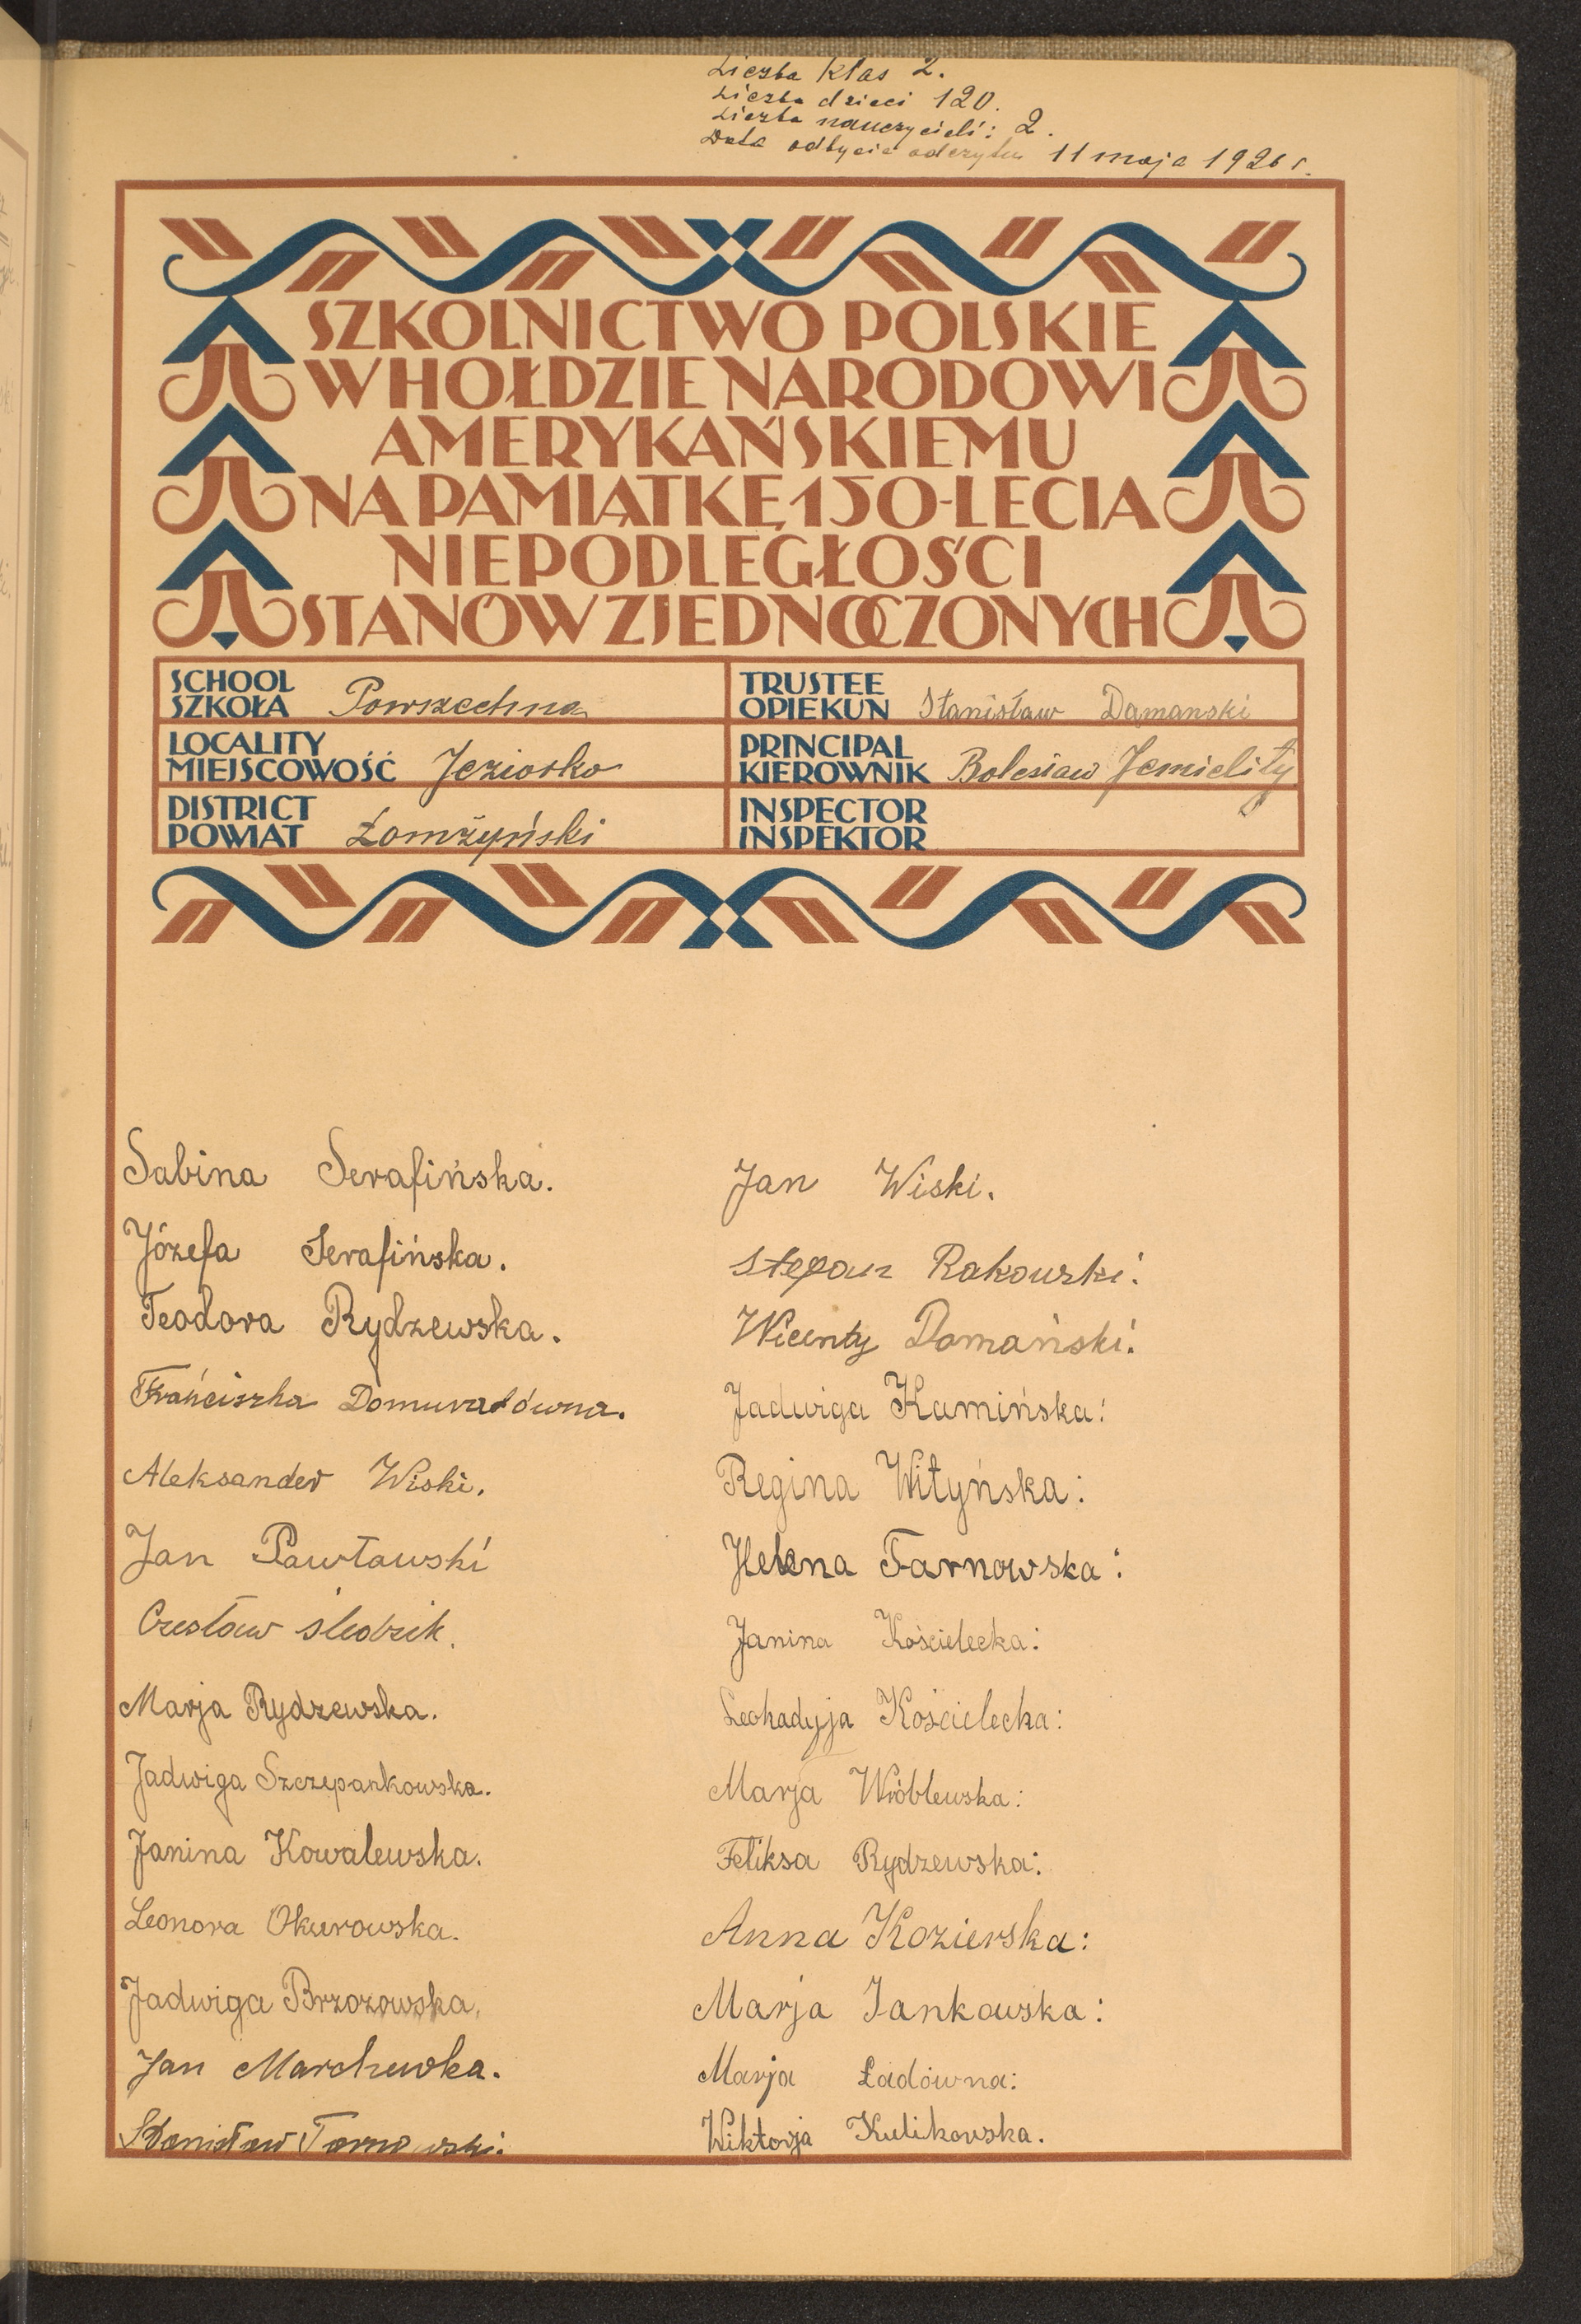 Liczba klas 2.
Liczba dzieci 120.
Liczba nauczycieli: 2.
Data odbycia odczytu 11 maja 1926 r.
SZKOLNICTWO POLSKIE
W HOŁDZIE NARODOWI
AMERYKAŃSKIEMU
NA PAMIĄTKĘ 150-LECIA
NIEPODLEGŁOŚCI
STANÓW ZJEDNOCZONYCH
SCHOOL
SZKOŁA Powszechna
TRUSTEE
OPIEKUN Stanisław Damanski
LOCALITY
MIEJSCOWOŚĆ Jeziorko
PRINCIPAL
KIEROWNIK Bolesław Jemielity
DISTRICT
POWIAT Łomżyński
INSPECTOR
INSPEKTOR
Sabina Serafińska.
Józefa Serafińska.
Teodora Rydzewska.
Frańciszka Domuratówna.
Aleksander Wiski.
Jan Pawławski
Czesław śledzik.
Marja Rydzewska.
Jadwiga Szczepankowska.
Janina Kowalewska.
Leonora Okurowska.
Jadwiga Brzozowska.
Jan Marchewka.
Stanisław Tarnowski.
Jan Wiski.
Stepan Rakowski.
Wicenty Domański.
Jadwiga Kamińska:
Regina Wityńska:
Helena Tarnowska:
Janina Kościelecka:
Leokadyja Kościelecka:
Marja Wróblewska:
Feliksa Rydzewska:
Anna Kozierska:
Marja Jankowska:
Marja Ładówna:
Wiktorja Kulikowska.